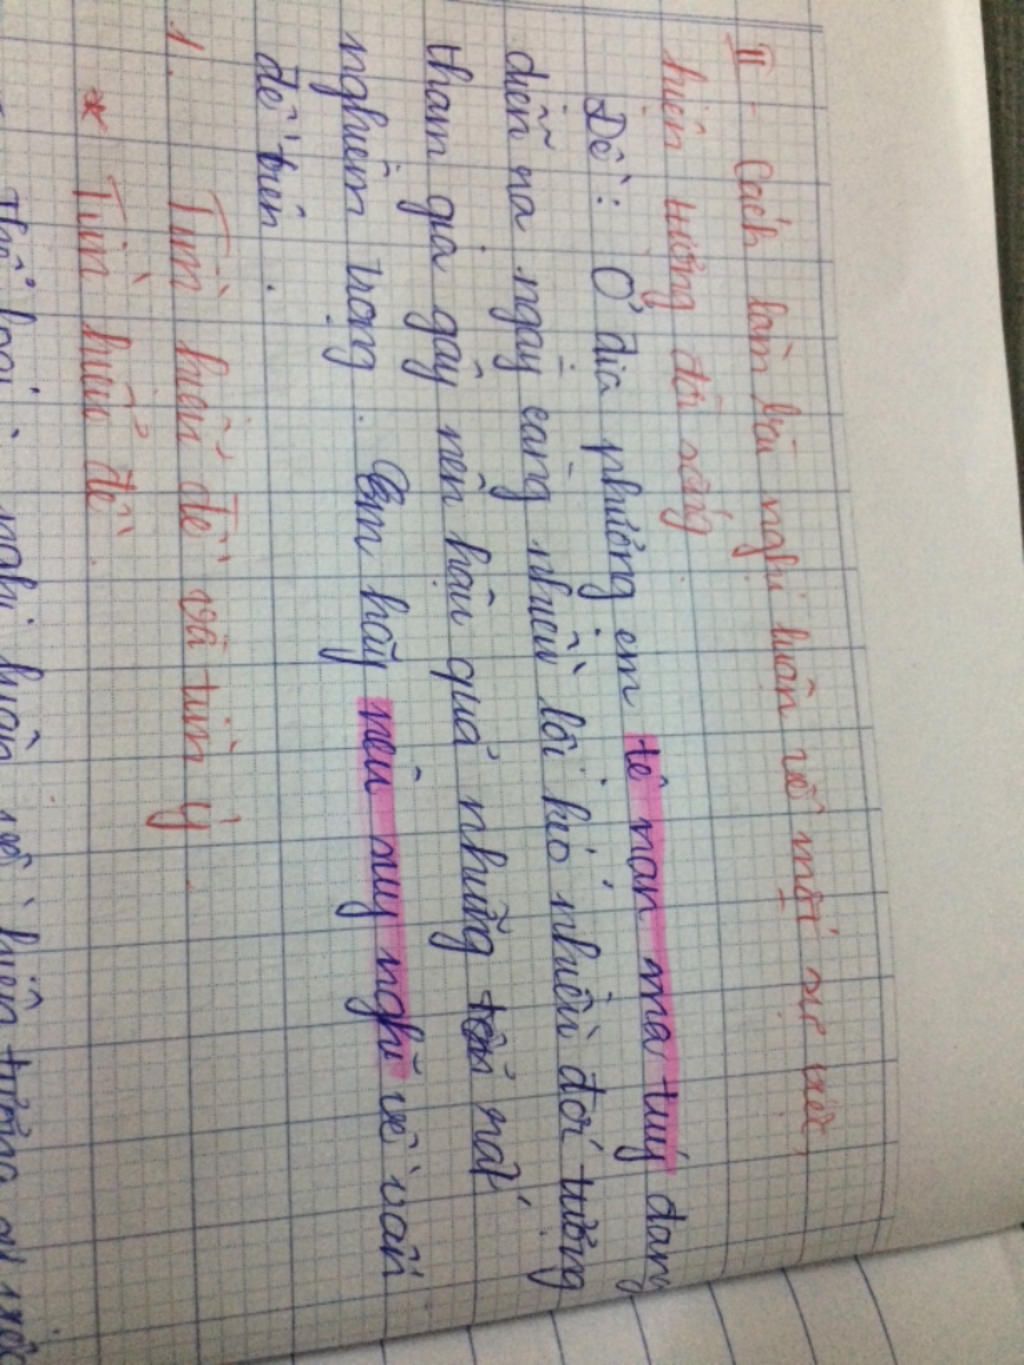 II. Cách làm bài nghị luận về một sự việc,
hiện tượng đời sống
Đề: Ở địa phương em tệ nạn ma tuý đang
diễn ra ngày càng nhiều lôi kéo nhiều đối tượng
tham gia gây nên hậu quả những tổn thất
nghiêm trọng. Em hãy nêu suy nghĩ về vấn
đề trên.
1. Tìm hiểu đề và tìm ý
* Tìm hiểu đề.
Thể loại: nghị luận về hiện tượng sự việc